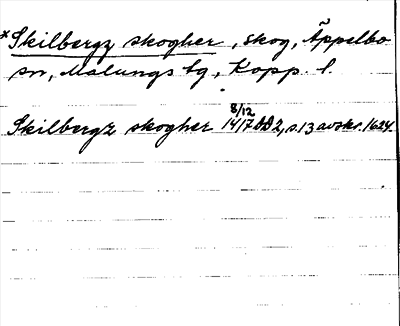 *Skilbergz skogher, skog, Äppelbo
sn, Malungs tg, Kopp. l.
Skilbergz skogher 8/12 1417 DD 2, s. 13 avskr. 1624.